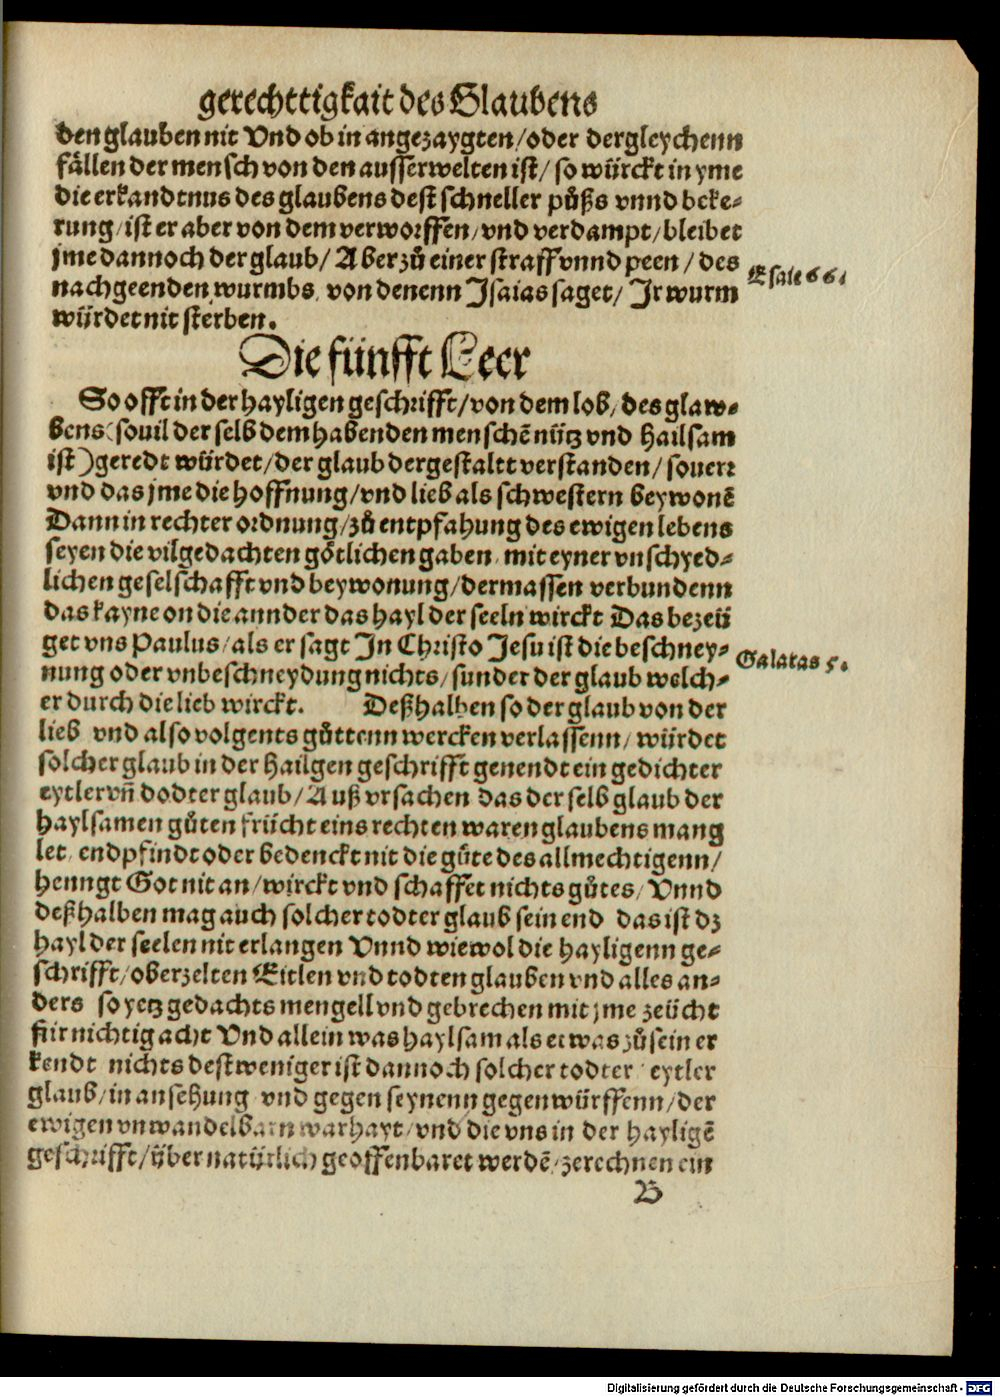 gerechttigkait des Glaubens
den glauben nit Vnd ob in angezaygten/oder dergleychenn
fällen der mensch von den ausserwelten ist/ so würckt in yme
die erkandtnus des glaubens dest schneller půßs vnnd beke⸗
rung/ist er aber von dem verworffen/vnd verdampt/bleibet
jme dannoch der glaub/ Aber zů einer straff vnnd peen/des
Esaie 66.
nachgeenden wurmbs, von denenn Jsaias saget/ Jr wurm
würdet nit sterben.
Die fünfft Leer
So offt in der hayligen geschrifft/von dem lob/des glaw⸗
bens (souil der selb dem habenden menschē nütz vnd hailsam
ist) geredt würdet/der glaub dergestaltt verstanden/souerr
vnd das jme die hoffnung/vnd lieb als schwestern beywonē
Dann in rechter ordnung/zů entpfahung des ewigen lebens
seyen die vilgedachten götlichen gaben, mit eyner vnschyed⸗
lichen geselschafft vnd beywonung/dermassen verbundenn
das kayne on die annder das hayl der seeln wirckt Das bezeü
get vns Paulus/als er sagt Jn Christo Jesu ist die beschney⸗
Galatas 5.
nung oder vnbeschneydung nichts/sunder der glaub welch⸗
er durch die lieb wirckt. Deßhalben so der glaub von der
lieb vnd also volgents gůttenn wercken verlassenn/würdet
solcher glaub in der Hailgen geschrifft genendt ein gedichter
eytler vn̄ dodter glaub/Auß vrsachen das der selb glaub der
haylsamen gůten frücht eins rechten waren glaubens mang
let, endpfindt oder bedenckt nit die gůte des allmechtigenn/
henngt Got nit an/wirckt vnd schaffet nichts gůtes/Vnnd
deßhalben mag auch solcher todter glaub sein end das ist dz
hayl der seelen nit erlangen Vnnd wiewol die hayligenn ge⸗
schrifft/oberzelten Eitlen vnd todten glauben vnd alles an⸗
ders so yetz gedachts mengell vnd gebrechen mit jme zeücht
für nichtig acht Vnd allein was haylsam als etwas zů sein er
kendt nichts destweniger ist dannoch solcher todter eytler
glaub/in ansehung vnd gegen seynenn gegenwürffenn/der
ewigen vnwandelbarn warhayt/vnd die vns in der hayligē
geschrifft/übernatürlich geoffenbaret werdē/zerechnen ein
B
Digitalisierung gefördert durch die Deutsche Forschungsgemeinschaft - DFG